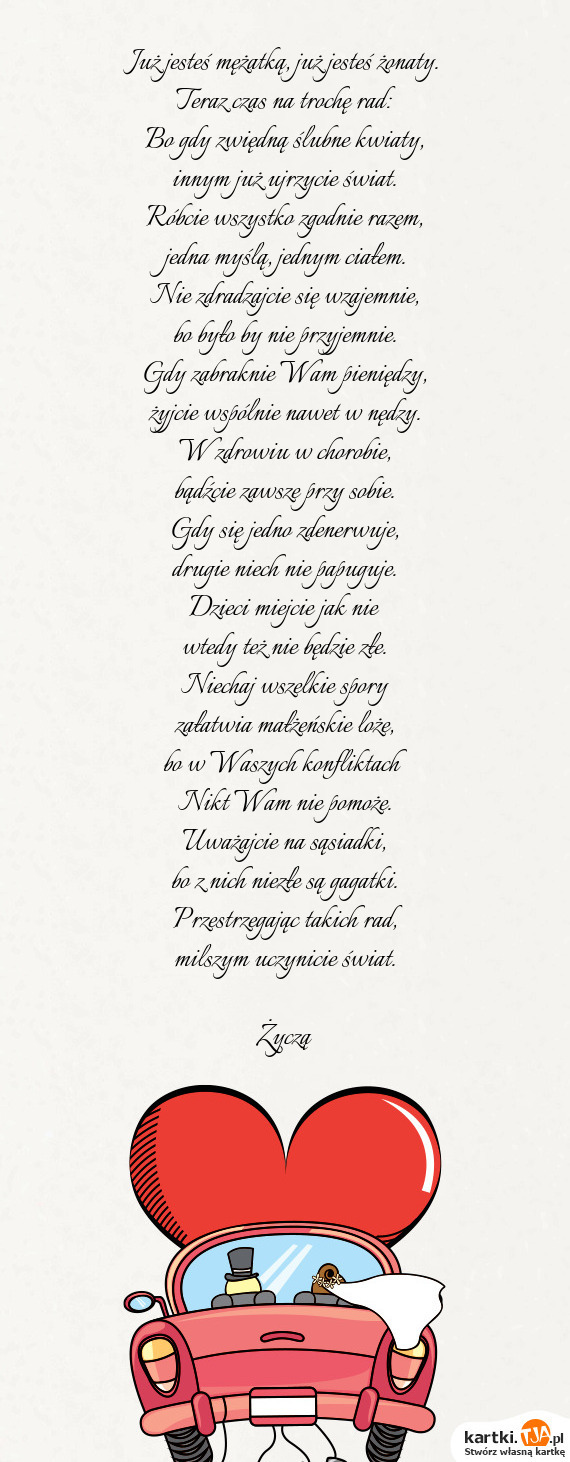 Już jesteś mężatką, już jesteś żonaty.
Teraz czas na trochę rad:
Bo gdy zwiędną ślubne kwiaty,
innym już ujrzycie świat.
Róbcie wszystko zgodnie razem,
jedna myślą, jednym ciałem.
Nie zdradzajcie się wzajemnie,
bo było by nie przyjemnie.
Gdy zabraknie Wam pieniędzy,
żyjcie wspólnie nawet w nędzy.
W zdrowiu w chorobie,
bądźcie zawsze przy sobie.
Gdy się jedno zdenerwuje,
drugie niech nie papuguje.
Dzieci miejcie jak nie
wtedy też nie będzie złe.
Niechaj wszelkie spory
załatwia małżeńskie loże,
bo w Waszych konfliktach
Nikt Wam nie pomoże.
Uważajcie na sąsiadki,
bo z nich niezłe są gagatki.
Przestrzegając takich rad,
milszym uczynicie świat.
Życzą
kartki.TJA.pl
Stwórz własną kartkę